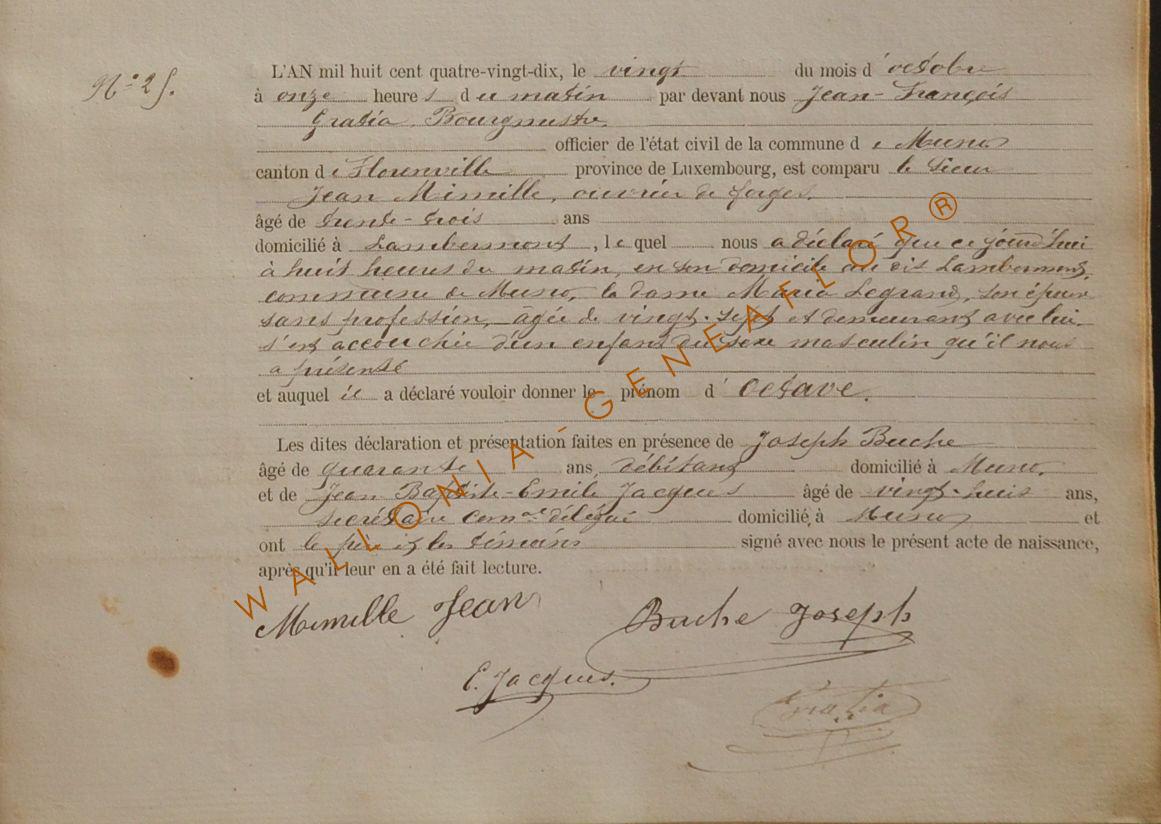 N° 25.
L'AN mil huit cent quatre-vingt-dix, le vingt du mois d'octobre
à onze heures du matin par devant nous Jean-François
Gratia Bourgmestre
officier de l'état civil de la commune de Muno
canton de Florenville province de Luxembourg, est comparu le Sieur
Jean Mimille, ouvrier de forges.
âgé de trente-trois ans
domicilié à Lambermont, lequel nous a déclaré que ce jourd'hui
à huit heures du matin, en son domicile au dit Lambermont,
commune de Muno, la dame Maria Legrand, son épouse
sans profession, agée de vingt-sept et demeurant avec lui,
s'est accouchée d'un enfant du sexe masculin qu'il nous
a présenté
et auquel il a déclaré vouloir donner le prénom d'Octave.
Les dites déclaration et présentation faites en présence de Joseph Buche
âgé de quarante ans, débitant domicilié à Muno,
et de Jean Baptiste-Emile Jacques âgé de vingt-huit ans,
secrétaire com^al délégué domicilié à Muno et
ont le père et les témoins signé avec nous le présent acte de naissance,
après qu'il leur en a été fait lecture.
Mimille Jean
Buche Joseph
E. Jacques.
Gratia
WALLONIA-GENEAFLOR®